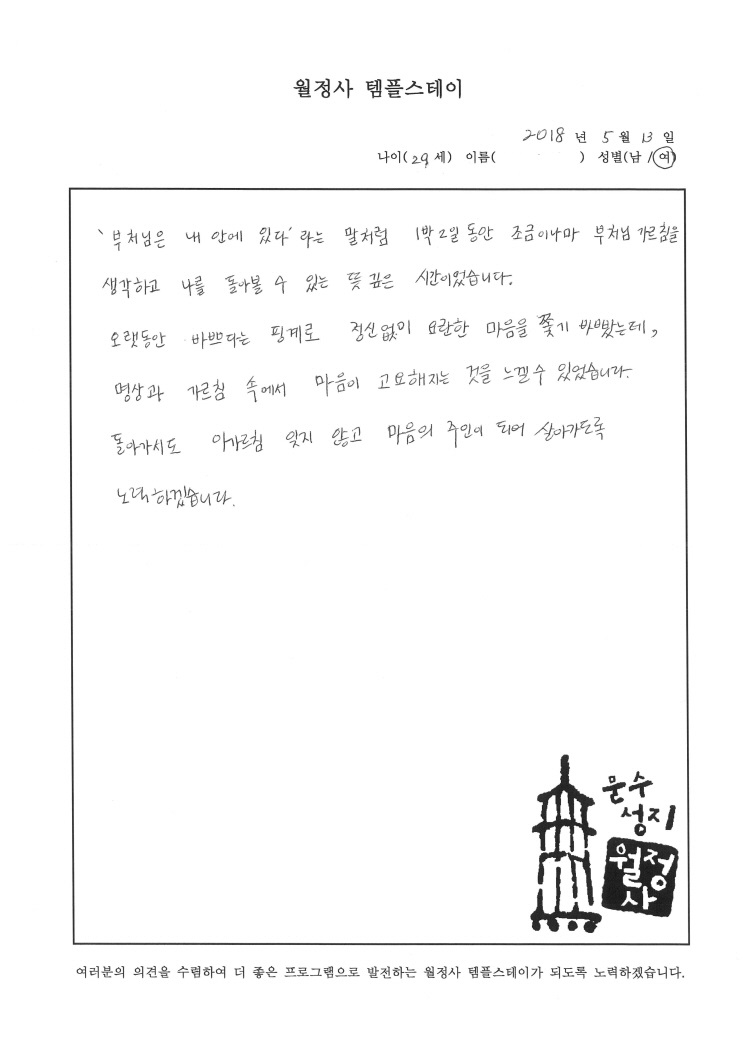 월정사 템플스테이
2018 년 5 월 13 일
나이(29 세) 이름( ) 성별(남 / 여)
'부처님은 내 안에 있다' 라는 말처럼 1박 2일 동안 조금이나마 부처님 가르침을
생각하고 나를 돌아볼 수 있는 뜻 깊은 시간이었습니다.
오랫동안 바쁘다는 핑계로 정신없이 요란한 마음을 쫓기 바빴는데,
명상과 가르침 속에서 마음이 고요해지는 것을 느낄 수 있었습니다.
돌아가서도 이 가르침 잊지 않고 마음의 주인이 되어 살아가도록
노력하겠습니다.
문수
성지
월정
사
여러분의 의견을 수렴하여 더 좋은 프로그램으로 발전하는 월정사 템플스테이가 되도록 노력하겠습니다.